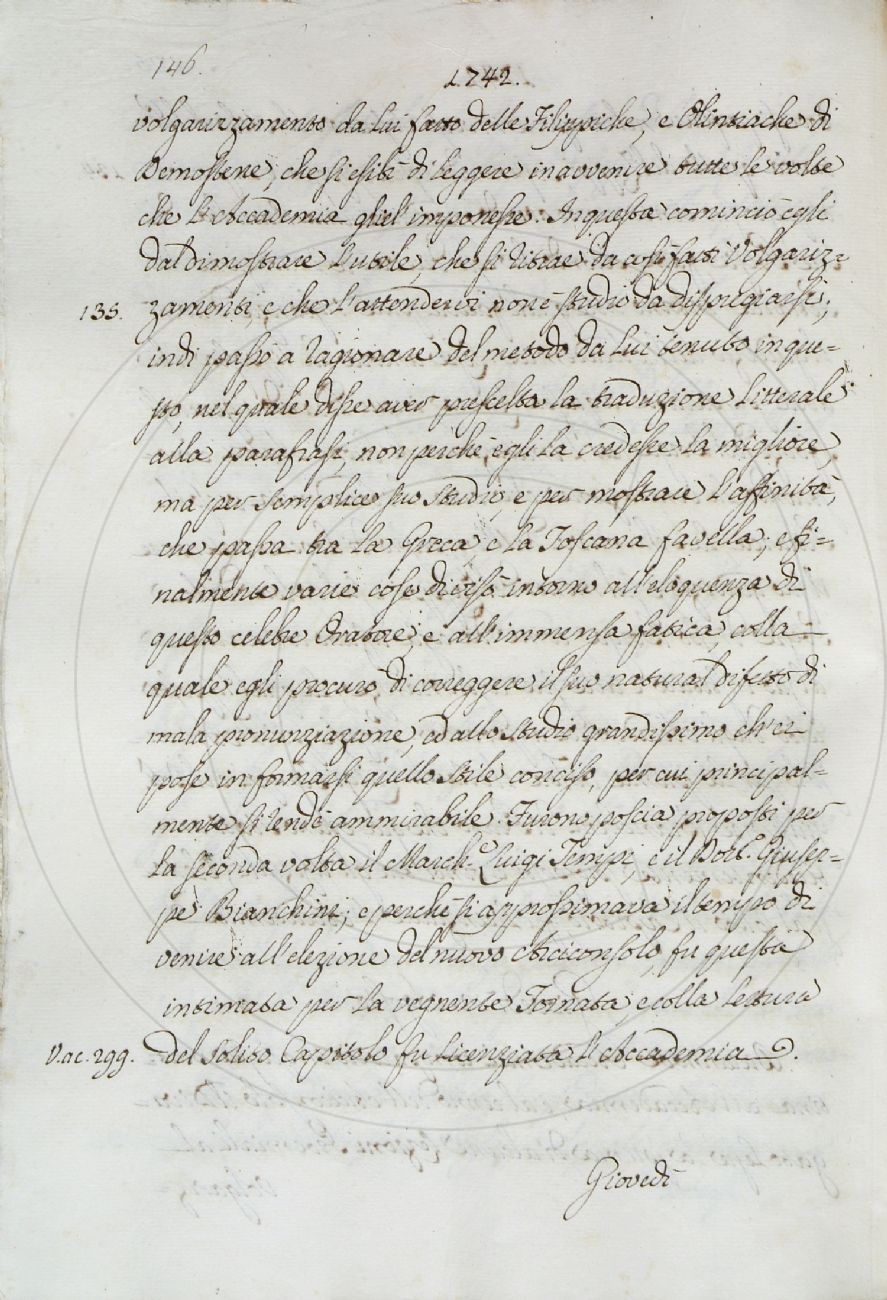 146.
1742.
volgarizzamento da lui fatto delle Filippiche, e Olintiache di
Demostene, che si esibì di leggere in avvenire tutte le volte
che l'Accademia gliel'imponesse. In questa cominciò egli
dal dimostrare l'utile, che si ritrae da così fatti Volgariz=
135. zamenti, e che l'attendervi non è studio da dispregiarsi;
indi passò a ragionare del metodo da lui tenuto in que=
sto, nel quale disse aver prescelta la traduzione litterale
alla parafrasi, non perchè egli la credesse la migliore,
ma per semplice suo studio, e per mostrare l'affinità,
che passa tra la Greca, e la Toscana favella; e fi=
nalmente varie cose divisò intorno all'eloquenza di
questo celebre Oratore, e all'immensa fatica, colla
quale egli procurò di correggere il suo natural difetto di
mala pronunziazione, ed allo studio grandissimo ch'ei
pose in formarsi quello stile conciso, per cui principal=
mente si rendè ammirabile. Furono poscia proposti per
la seconda volta il March.e Luigi Tempi, e il Dott. Giusep=
pe Bianchini; e perchè si approssimava il tempo di
venire all'elezione del nuovo Arciconsolo, fu questa
intimata per la vegnente Tornata, e colla lettura
V. ac. 299. del solito Capitolo fu licenziata l'Accademia.
Giovedì